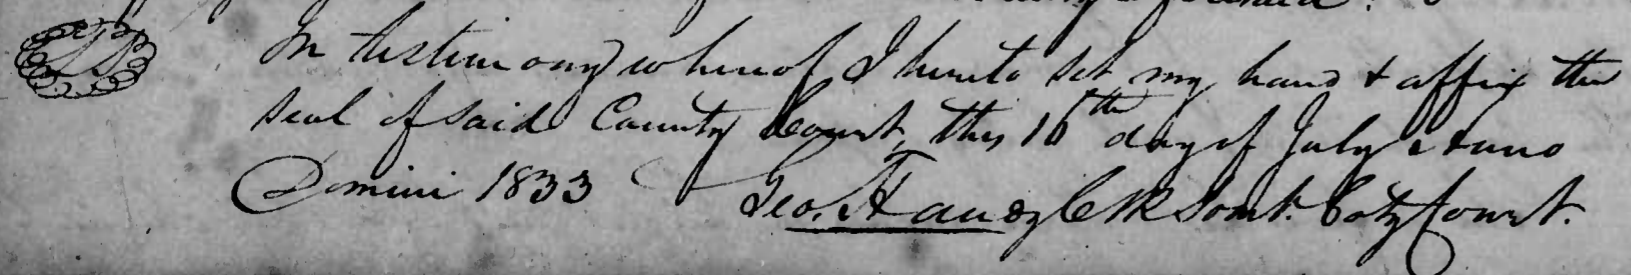 LS
In testimony whereof I hereto set my hand & affix the
seal of said County Court, this 16th day of July Anno
Domini 1833 Geo. Handy Clk Somt. Coty Court.